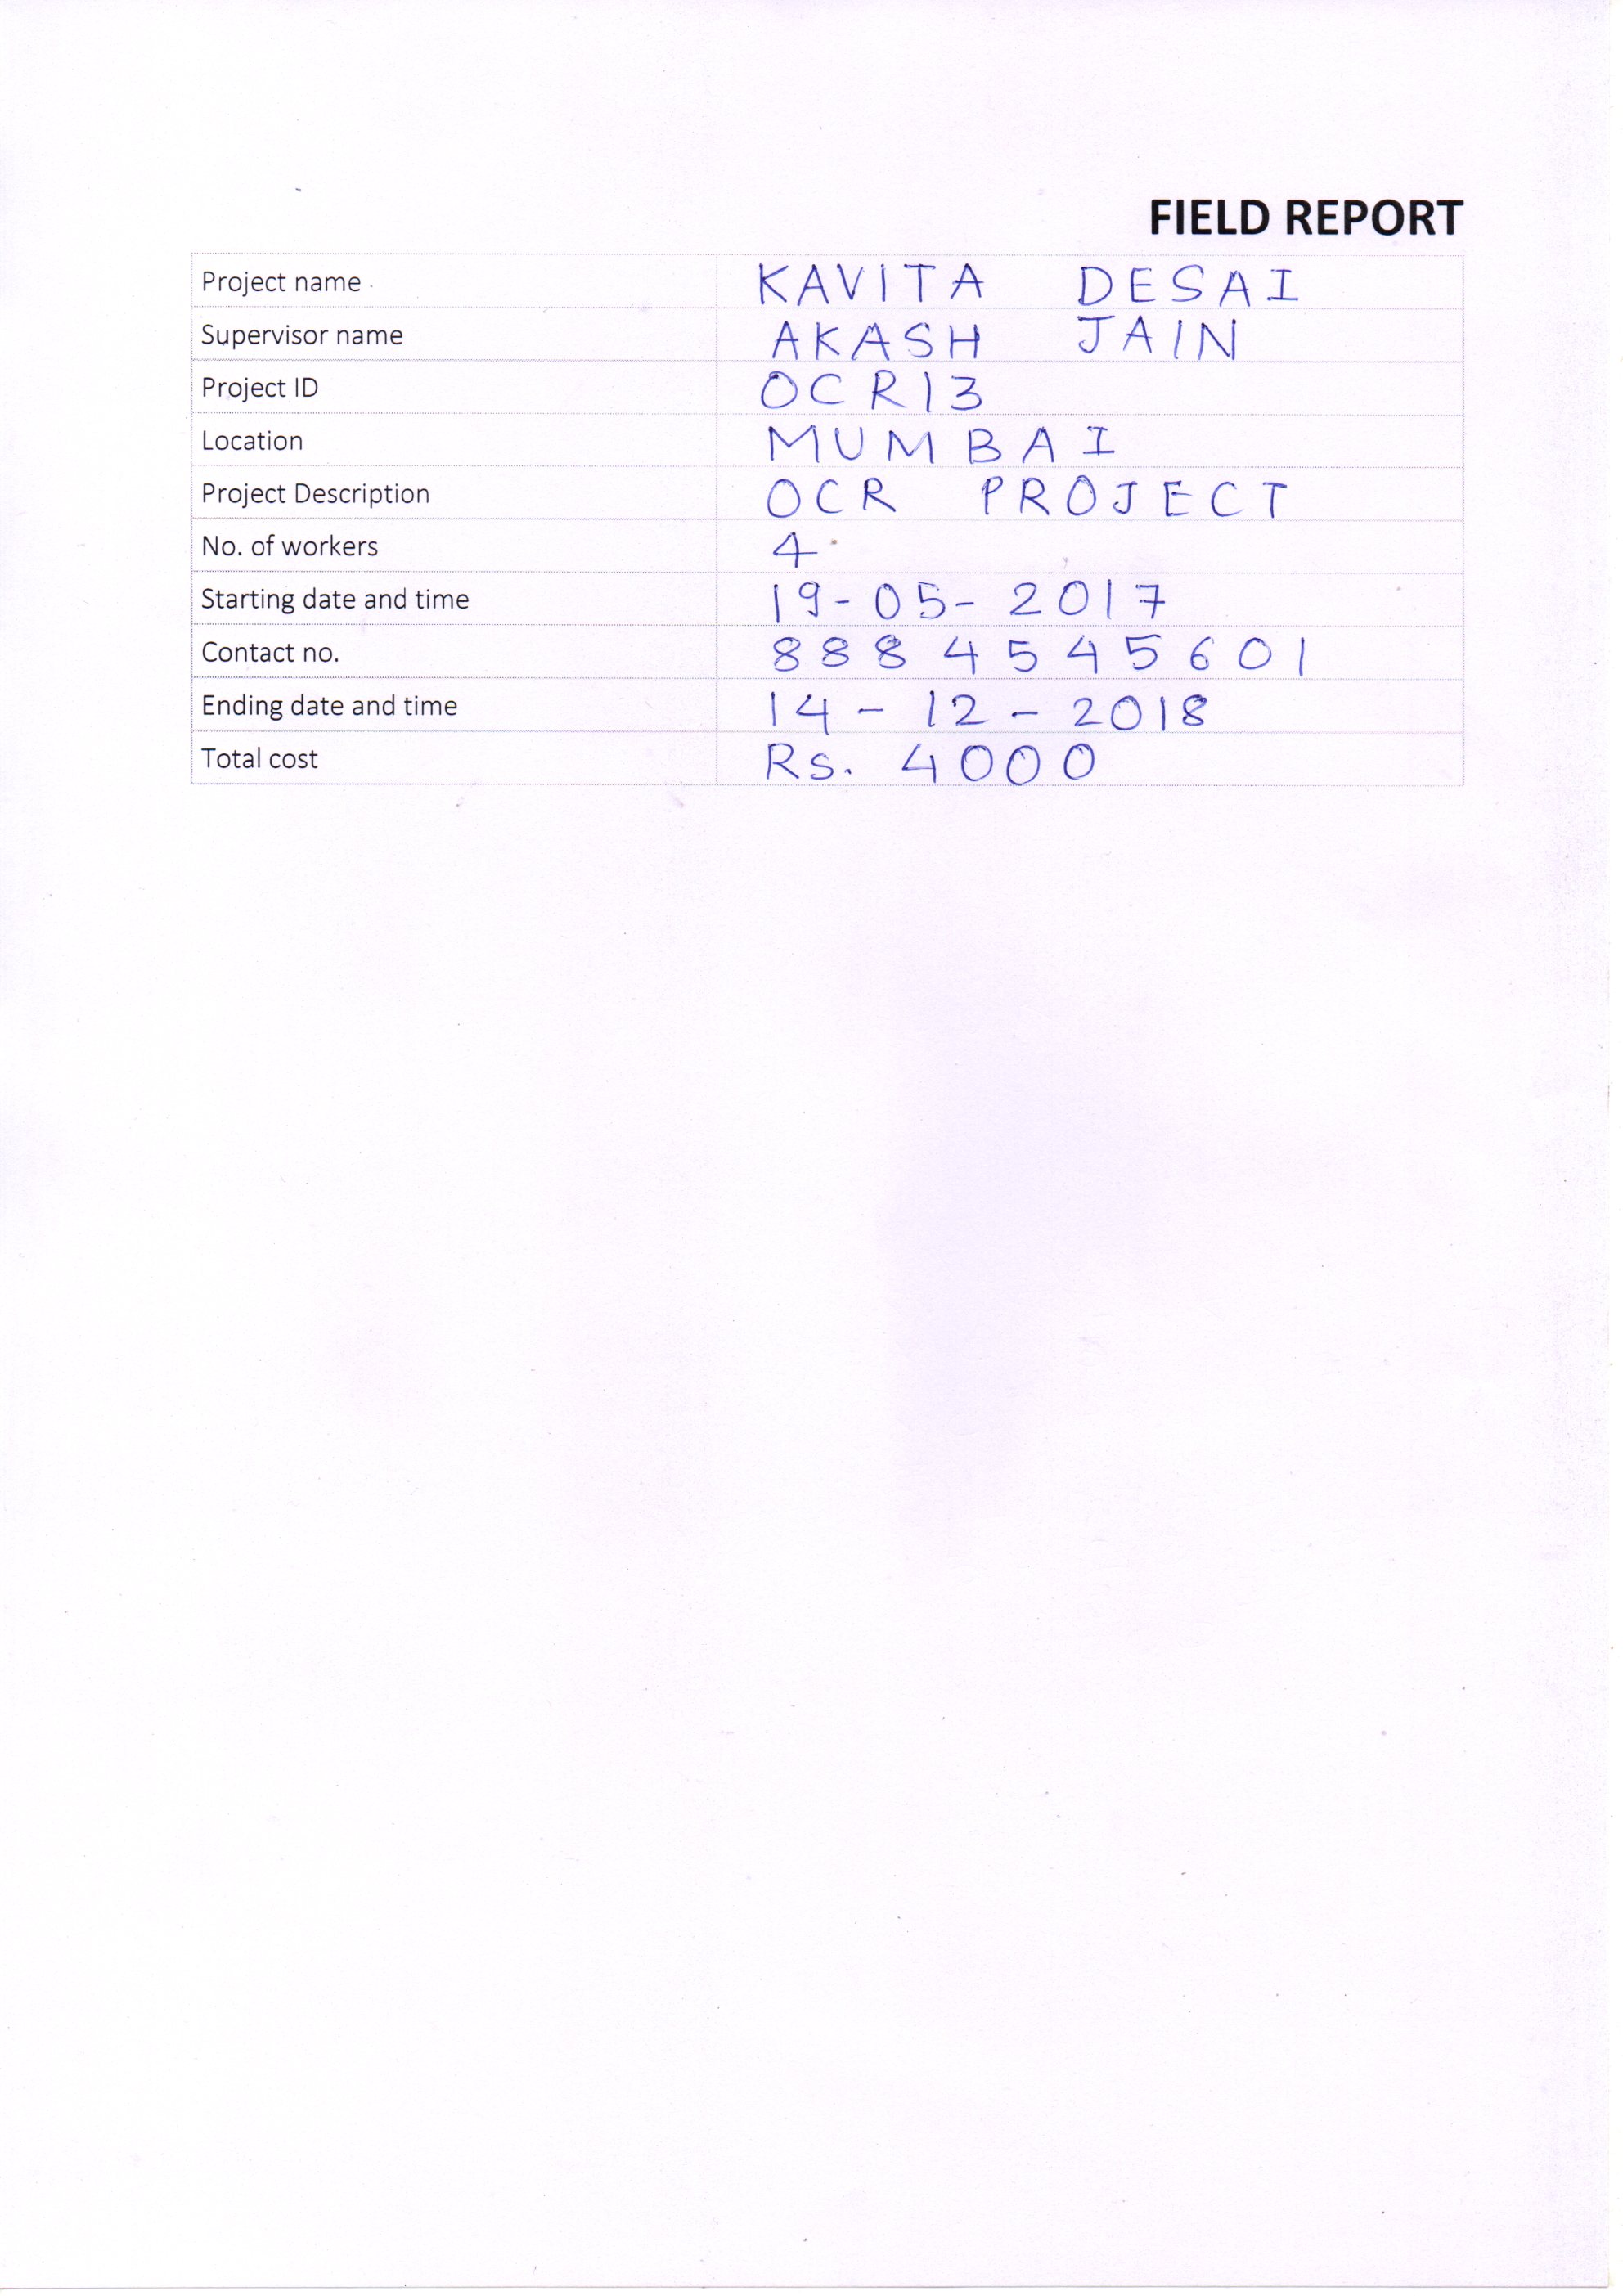 FIELD REPORT
Project name KAVITA DESAI
Supervisor name AKASH JAIN
Project ID OCR13
Location MUMBAI
Project Description OCR PROJECT
No. of workers 4
Starting date and time 19-05-2017
Contact no. 8884545601
Ending date and time 14-12-2018
Total cost Rs. 4000